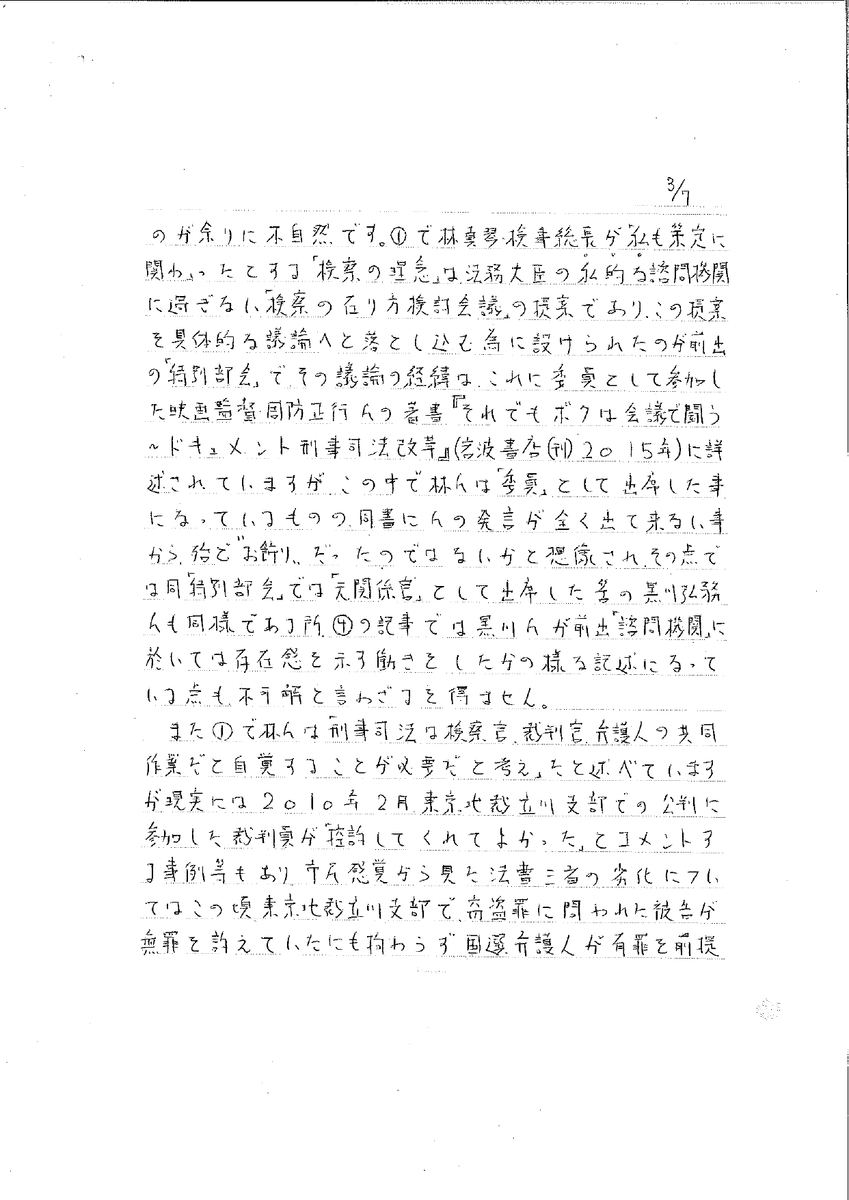 3/7
のが余りに不自然です。①で林真琴・検事総長が「私も策定に
関わ」ったとする「検察の理念」は法務大臣の私的な諮問機関
に過ぎない「検察の在り方検討会議」の提案であり、この提案
を具体的な議論へと落とし込む為に設けられたのが前出
の「特別部会」で、その議論の経緯は、これに委員として参加し
た映画監督・周防正行んの著書『それでもボクは会議で闘う
～ドキュメント刑事司法改革』(岩波書店(刊)2015年)に詳
述されていますが、この中で林んは「委員」として出席した事
になっているものの、同書にんの発言が全く出て来ない事
から、殆ど〝お飾り〟だったのではないかと想像され、その点で
は同「特別部会」では「元関係官」として出席した筈の黒川弘務
んも同様である所、④の記事では黒川んが前出「諮問機関」に
於いては存在感を示す動きをしたかの様な記述になって
いる点も、不可解と言わざるを得ません。
また①で林んは「刑事司法は検察官、裁判官、弁護人の共同
作業だと自覚することが必要だと考え」たと述べています
が現実には2010年2月、東京地裁立川支部での公判に
参加した裁判員が「控訴してくれてよかった」とコメントす
る事例等もあり、市民感覚から見た法曹三者の劣化につい
てはこの頃、東京地裁立川支部で、窃盗罪に問われた被告が
無罪を訴えていたにも拘わらず国選弁護人が有罪を前提